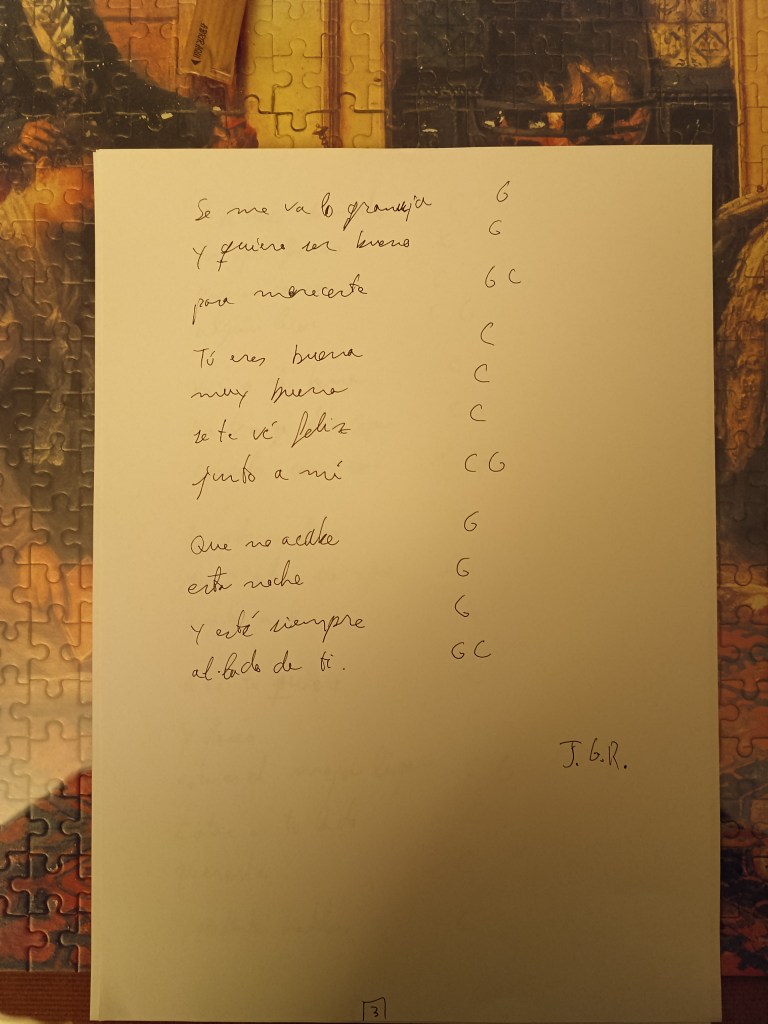 Se me va lo granuja G
y quiero ser bueno G
para merecerte G C
Tú eres buena C
muy buena C
se te vé feliz C
junto a mí C G
Que no acabe G
esta noche G
y esté siempre G
al lado de ti. G C
J. G. R.
3